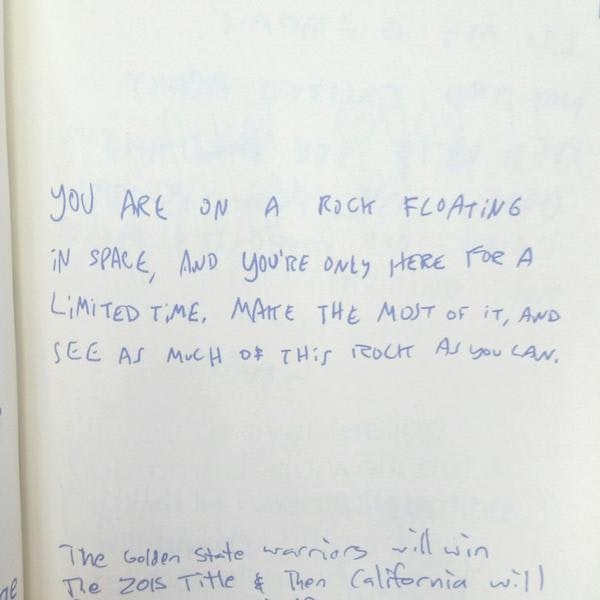 YOU ARE ON A ROCK FLOATING
IN SPACE, AND YOU'RE ONLY HERE FOR A
LIMITED TIME. MAKE THE MOST OF IT, AND
SEE AS MUCH OF THIS ROCK AS YOU CAN.
The Golden State warriors will win
The 2015 Title & Then California will